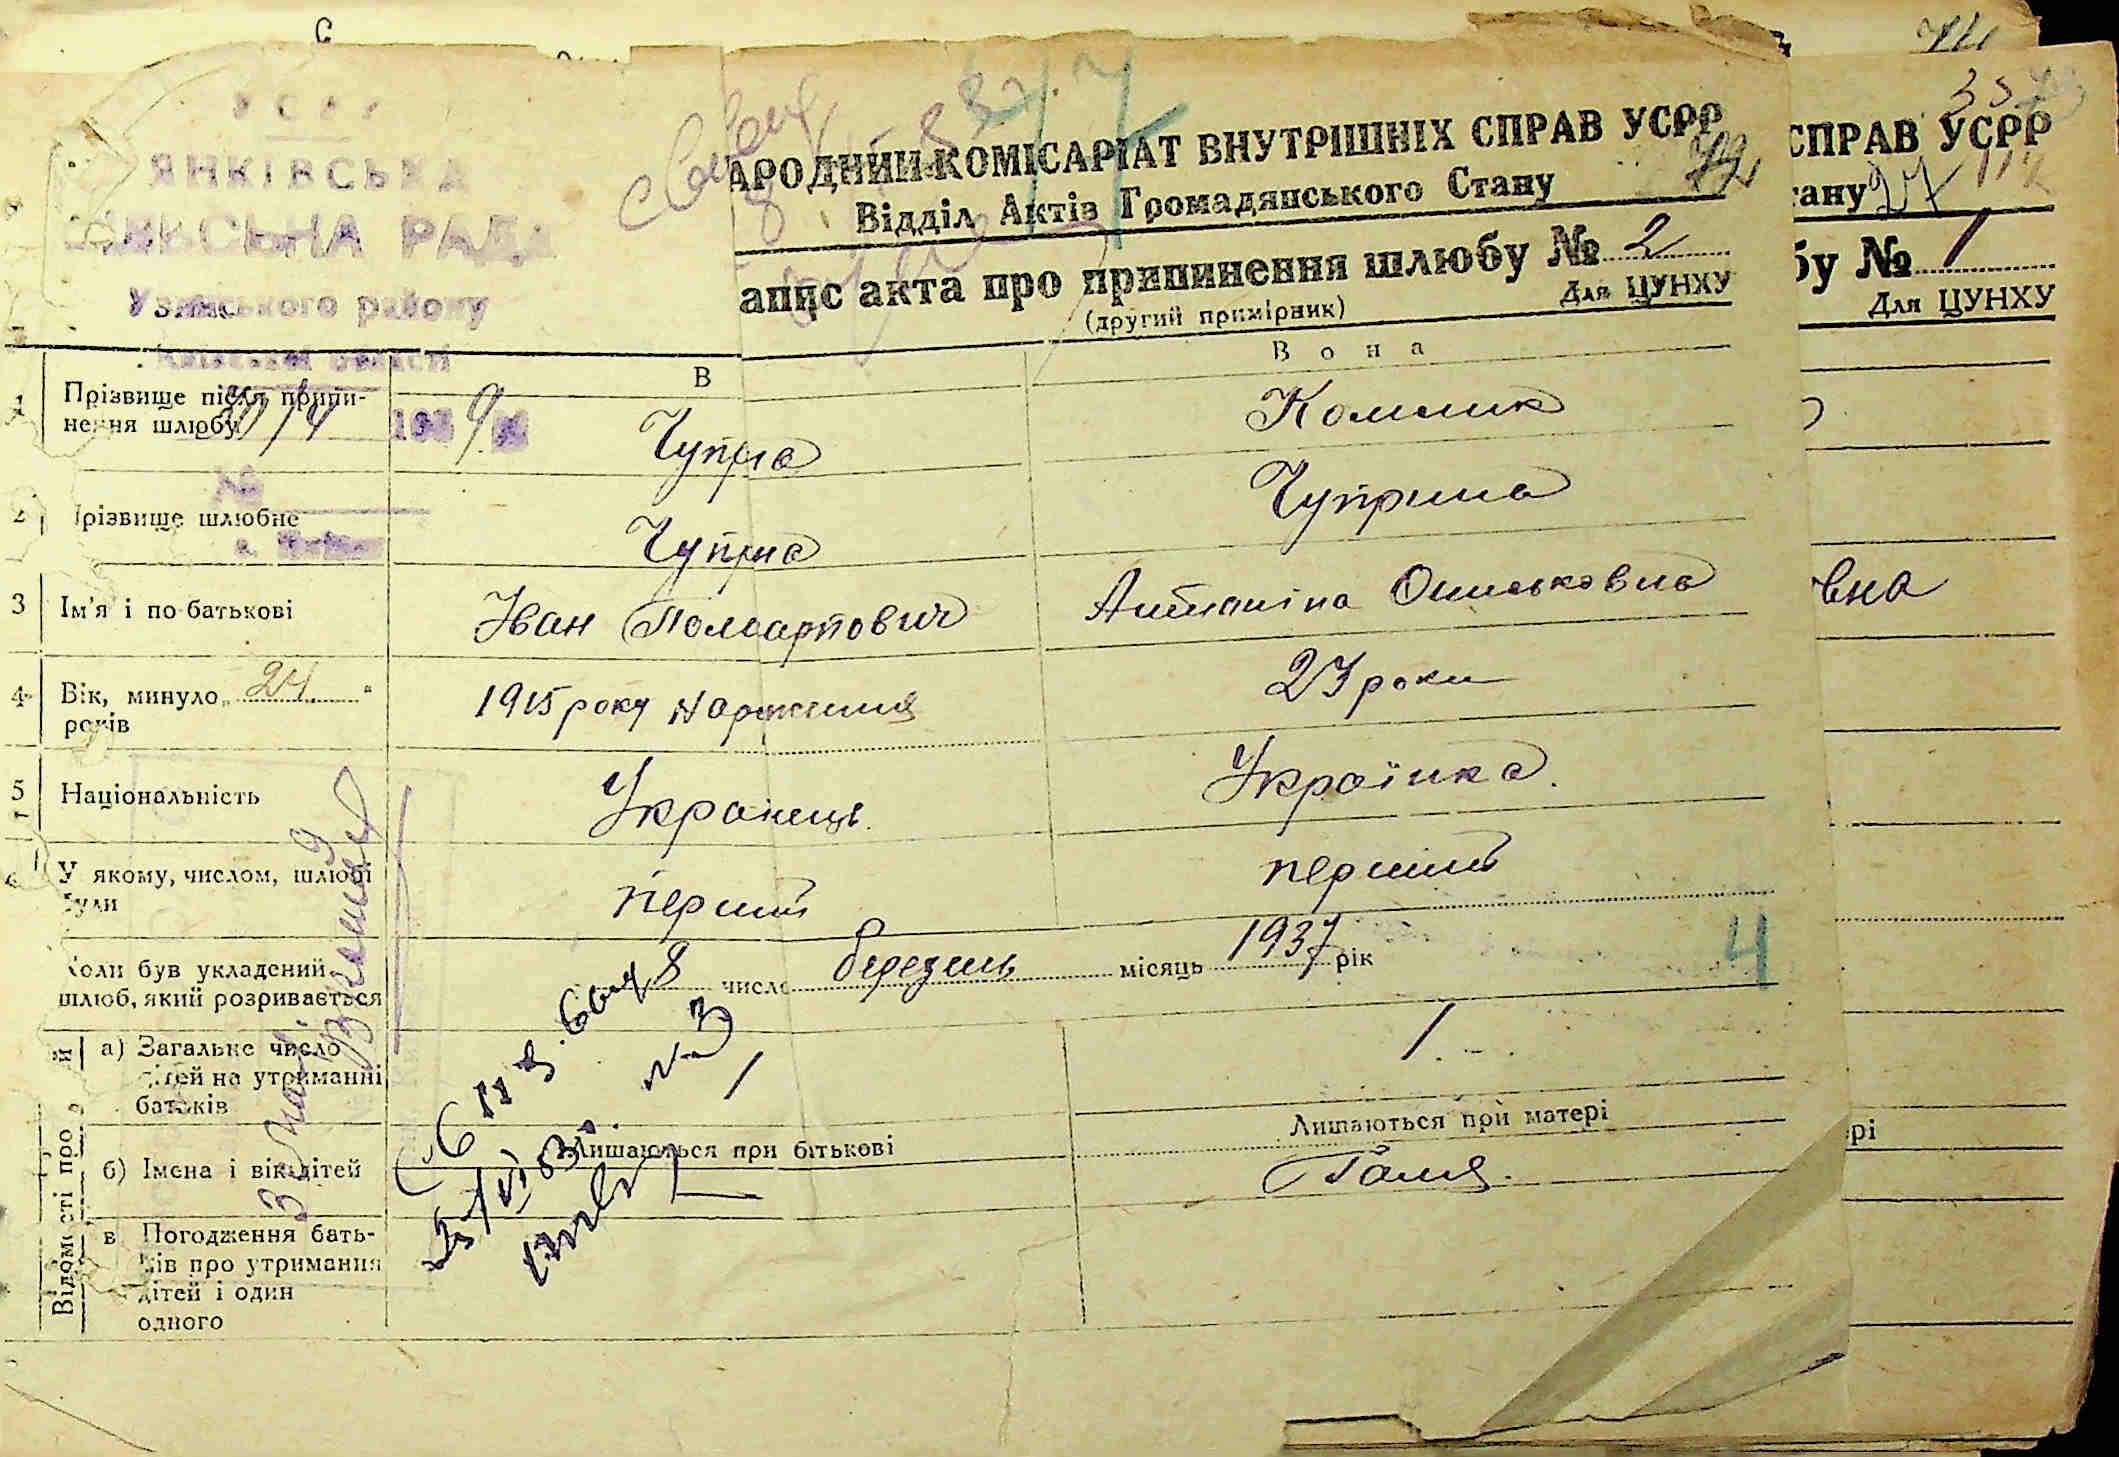 УСРР
ЯНКІВСЬКА
СІЛЬСЬКА РАДА
Узинського району
Київської області
193 9 р.
№
АРОДНИЙ КОМІСАРІАТ ВНУТРІШНІХ СПРАВ УСРР
Відділ Актів Громадянського Стану
апис акта про припинення шлюбу № 2
(другий примірник) Для ЦУНХУ
СПРАВ УСРР
тану 27
бу № 1
Для ЦУНХУ
В Вона
1 Прізвище після припи-
нення шлюбу Чупра Комлик
2 Прізвище шлюбне Чупра Чуприна
3 Ім'я і по батькові Іван Полкарпович Антоніна Ониськовна
вна
4 Вік, минуло „ 24 “
років 1915 року нарження 23 роки
5 Національність Українець Українка.
6 У якому, числом, шлюбі
були перший перший
Коли був укладений
шлюб, який розривається 8 число березень місяць 1937 рік
4
Відомості про
а) Загальне число
дітей на утриманні
батьків / /
№3
б) Імена і вік дітей Лишаються при батькові Лишаються при матері
Галя.
рі
в Погодження бать-
ків про утримання
дітей і один
одного